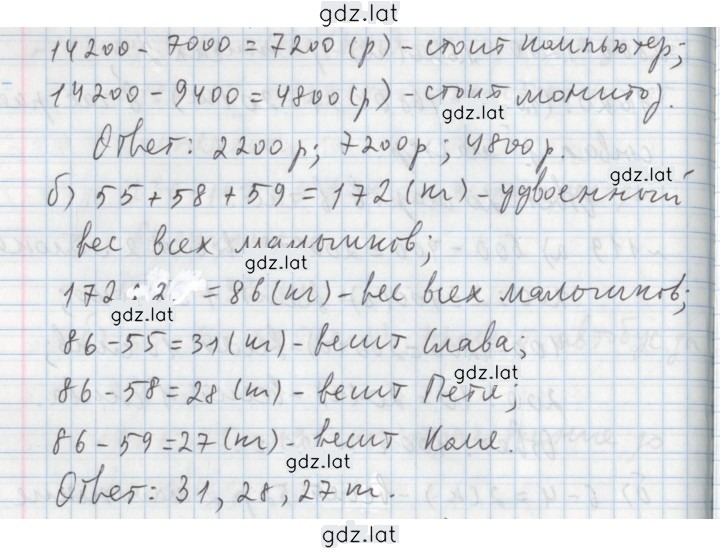 gdz.lat
14200 - 7000 = 7200 (р) - стоит компьютер;
14200 - 9400 = 4800 (р) - стоит монитор.
gdz.lat
Ответ: 2200 р; 7200 р; 4800 р.
gdz.lat
б) 55 + 58 + 59 = 172 (кг) - удвоенный
вес всех мальчиков;
gdz.lat
172 : 2 = 86 (кг) - вес всех мальчиков;
gdz.lat
86 - 55 = 31 (кг) - весит Слава;
gdz.lat
86 - 58 = 28 (кг) - весит Петя;
86 - 59 = 27 (кг) - весит Коля.
gdz.lat
Ответ: 31, 28, 27 кг.
gdz.lat